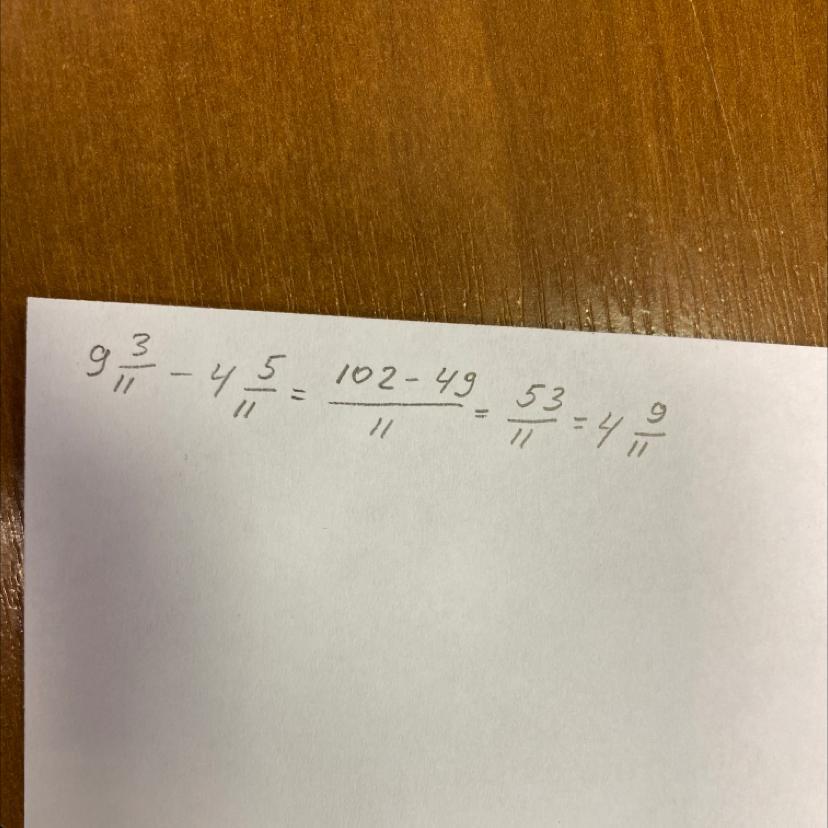 9 3/11 - 4 5/11 = 102 - 49/11 = 53/11 = 4 9/11